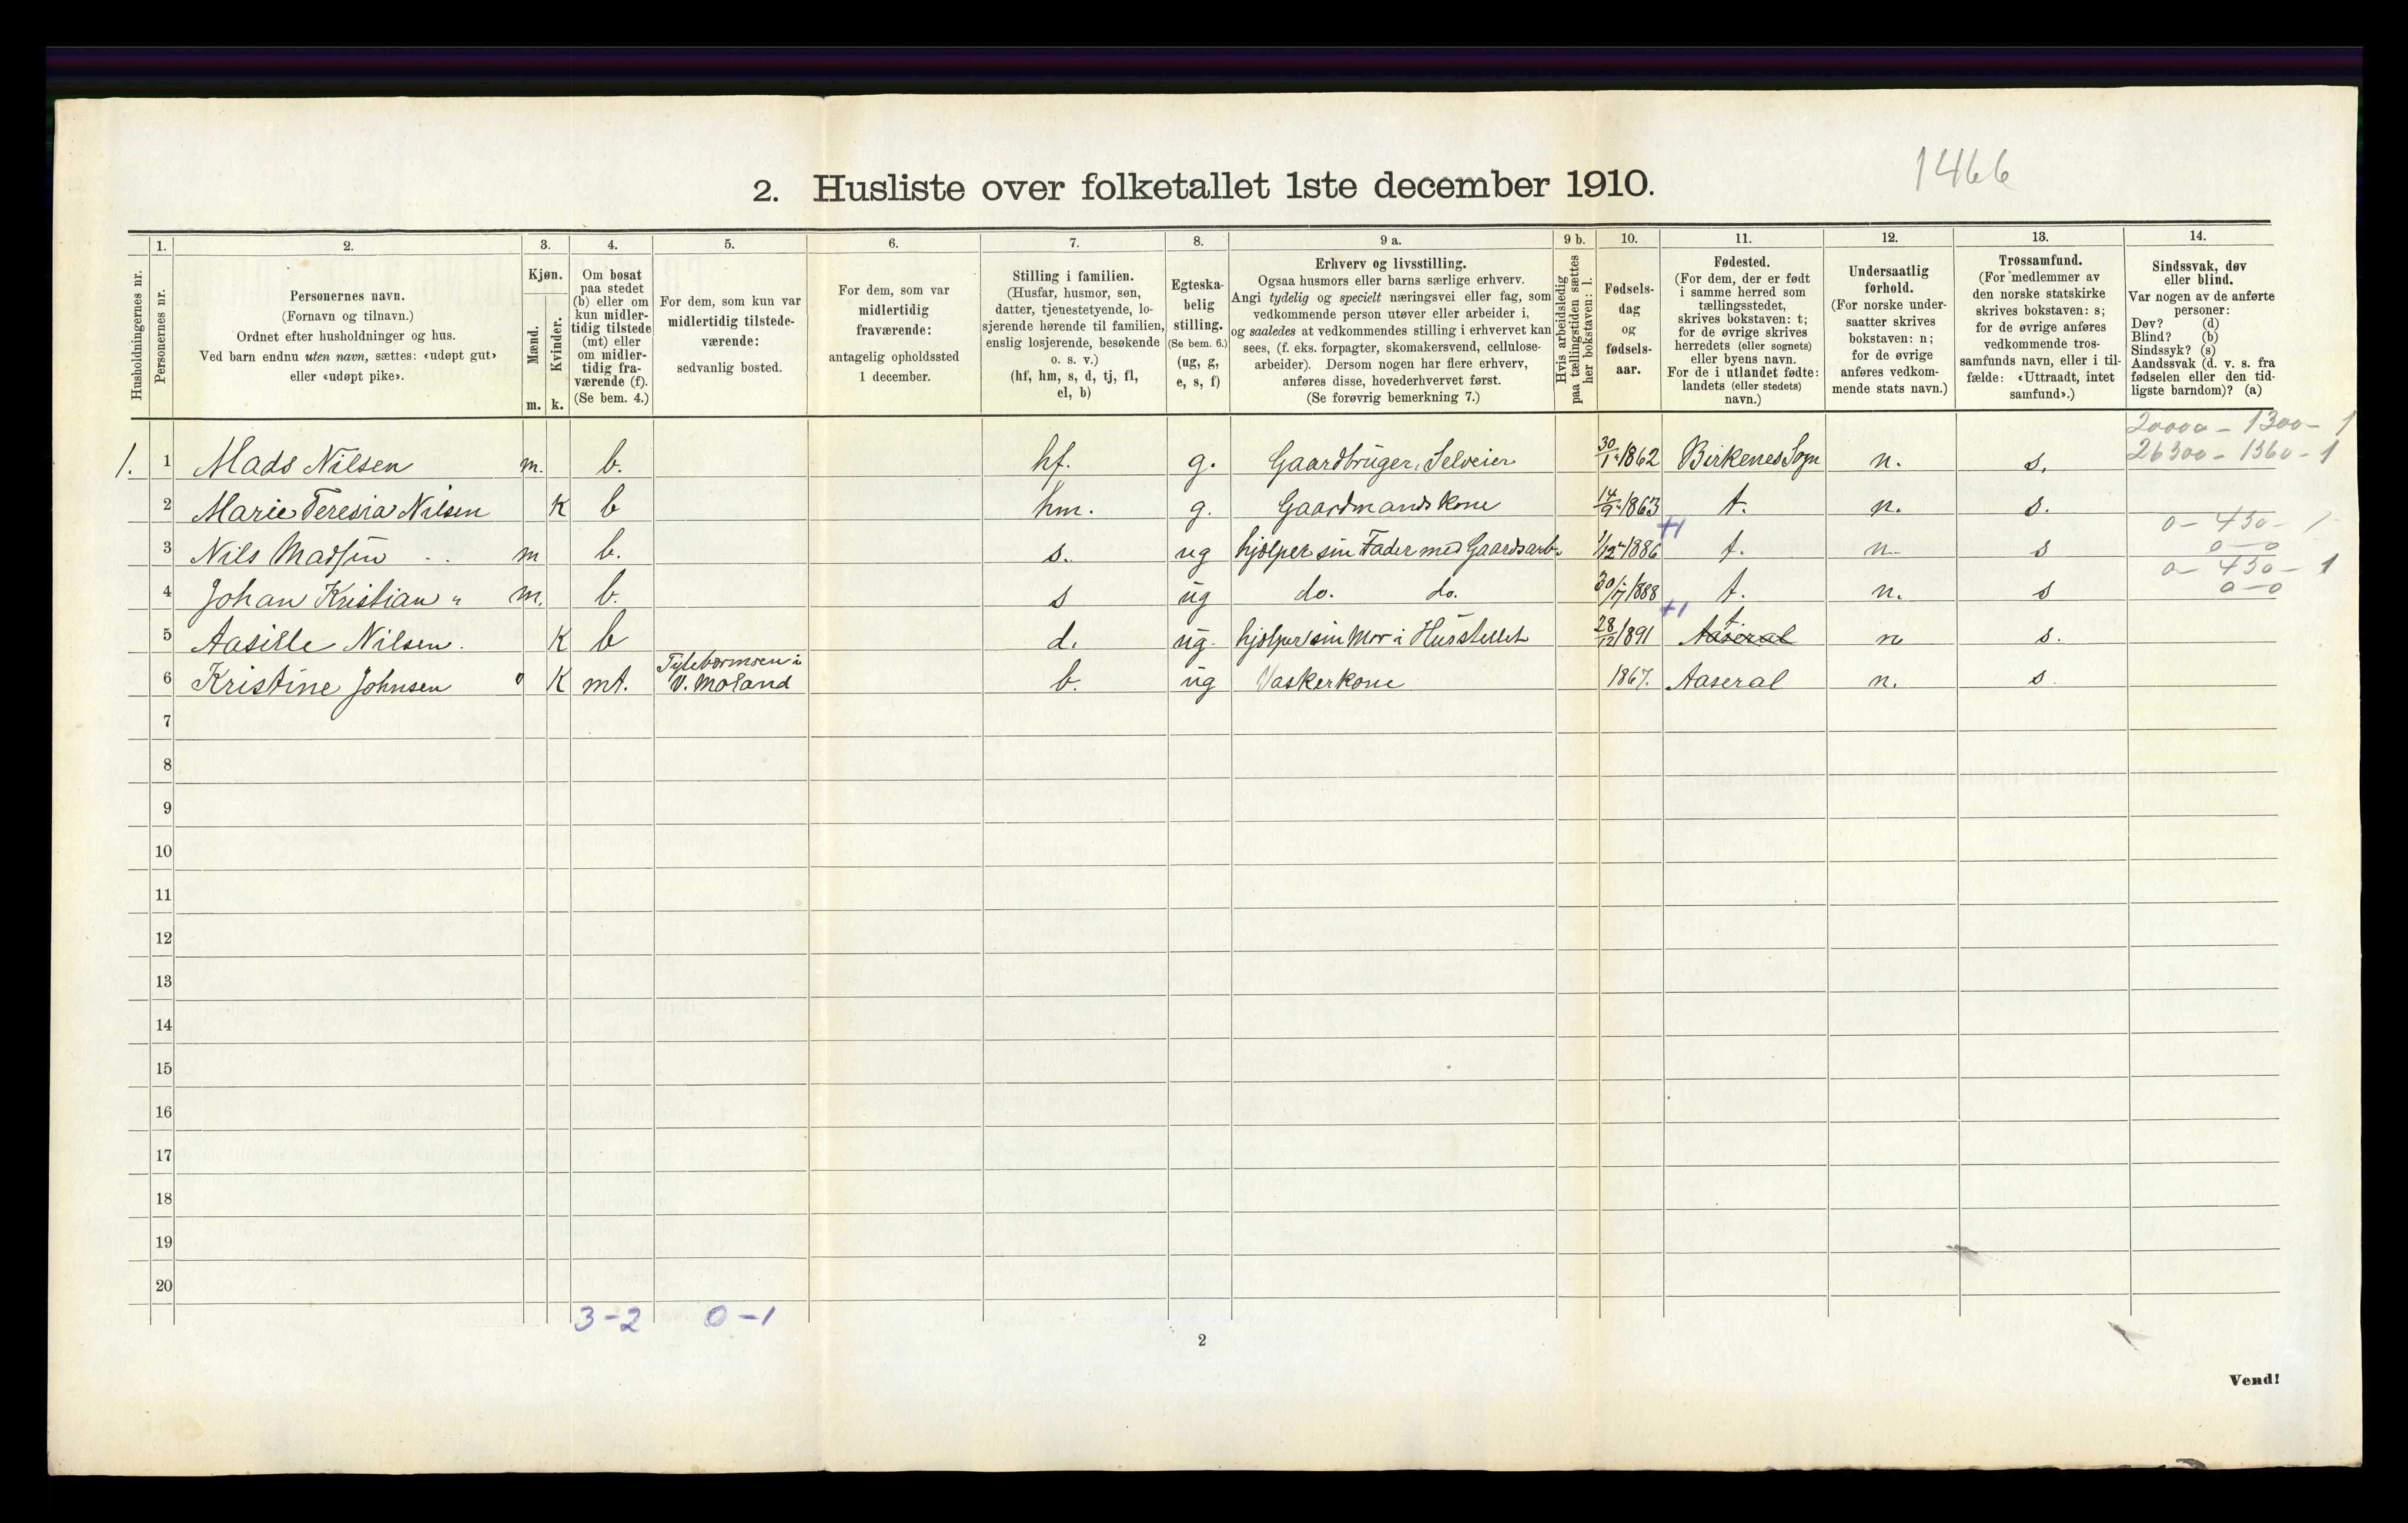 1466
2. Husliste over folketallet 1ste december 1910.
1. 2. 3. 4. 5. 6. 7. 8. 9 a. 9 b. 10. 11. 12. 13. 14.
Husholdningernes nr.
Personernes nr.
Personernes navn.
(Fornavn og tilnavn.)
Ordnet efter husholdninger og hus.
Ved barn endnu uten navn, sættes: «udøpt gut»
eller «udøpt pike».
Kjøn.
Mænd.
Kvinder.
m. k.
Om bosat
paa stedet
(b) eller om
kun midler-
tidig tilstede
(mt) eller
om midler-
tidig fra-
værende (f).
(Se bem. 4.)
For dem, som kun var
midlertidig tilstede-
værende:
sedvanlig bosted.
For dem, som var
midlertidig
fraværende:
antagelig opholdssted
1 december.
Stilling i familien.
(Husfar, husmor, søn,
datter, tjenestetyende, lo-
sjerende hørende til familien,
enslig losjerende, besøkende
o. s. v.)
(hf, hm, s, d, tj, fl,
el, b)
Egteska-
belig
stilling.
(Se bem. 6.)
(ug, g,
e, s, f)
Erhverv og livsstilling.
Ogsaa husmors eller barns særlige erhverv.
Angi tydelig og specielt næringsvei eller fag, som
vedkommende person utøver eller arbeider i,
og saaledes at vedkommendes stilling i erhvervet kan
sees, (f. eks. forpagter, skomakersvend, cellulose-
arbeider). Dersom nogen har flere erhverv,
anføres disse, hovederhvervet først.
(Se forøvrig bemerkning 7.)
Hvis arbeidsledig
paa tællingstiden sættes
her bokstaven: l.
Fødsels-
dag
og
fødsels-
aar.
Fødested.
(For dem, der er født
i samme herred som
tællingsstedet,
skrives bokstaven: t;
for de øvrige skrives
herredets (eller sognets)
eller byens navn.
For de i utlandet fødte:
landets (eller stedets)
navn.)
Undersaatlig
forhold.
(For norske under-
saatter skrives
bokstaven: n;
for de øvrige
anføres vedkom-
mende stats navn.)
Trossamfund.
(For medlemmer av
den norske statskirke
skrives bokstaven: s;
for de øvrige anføres
vedkommende tros-
samfunds navn, eller i til-
fælde: «Uttraadt, intet
samfund».)
Sindssvak, døv
eller blind.
Var nogen av de anførte
personer:
Døv? (d)
Blind? (b)
Sindssyk? (s)
Aandssvak (d. v. s. fra
fødselen eller den tid-
ligste barndom)? (a)
20000 - 1300 - 1
1. 1 Mads Nilsen m. b. hf. g. Gaardbruger, Selveier 30/1 1862 Birkenes Sogn n. s. 26300 - 1360 - 1
2 Marie Teresia Nilsen K b hm. g. Gaardmandskone 14/9 1863 t. n. s.
+1 0 - 430 - 1
3 Nils Madsen m b. s. ug hjelper sin Fader med Gaardsarb. 1/12 1886 t. n. s 0-0
0 - 430 - 1
4 Johan Kristian " m. b. s ug do. do. 30/7 1888 t. n. s 0-0
+1 t
5 Aasille Nilsen. K b d. ug. hjelper sin Mor i Husstellet 28/12 1891 Aaseral n s.
Tytebærmoen i
6 Kristine Johnsen K mt. V. Moland b. ug Vaskerkone 1867. Aaseral n. s
7
8
9
10
11
12
13
14
15
16
17
18
19
20
3-2 0-1
2
Vend!